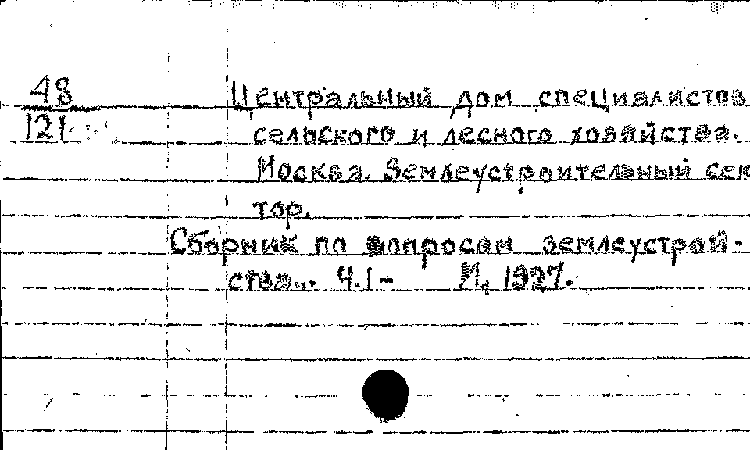 48
121
Центральный дом специалиста
сельского и лесного хозяйства.
Москва. Землеустроительный сек
тор.
Сборник по вопросам землеустрой-
ства... Ч.1- М. 1927.